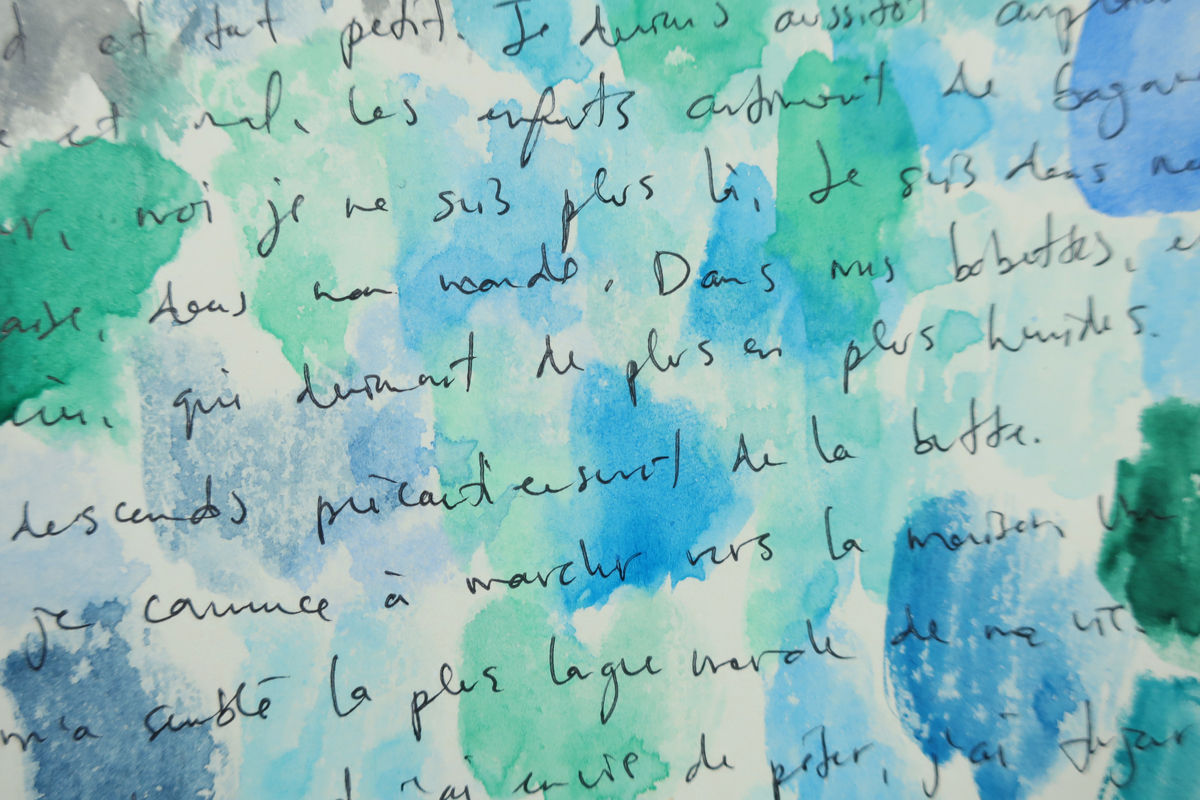 et tout petit. Je deviens aussitôt
et mal. Les enfants continuent de
moi je ne suis plus là, Je suis dans
dans mon monde. Dans mes bobettes,
qui deviennent de plus en plus humides.
descends précautionneusement de la butte.
je commence à marcher vers la maison
m'a semblé la plus longue marche de ma vie.
j'ai envie de péter, j'ai